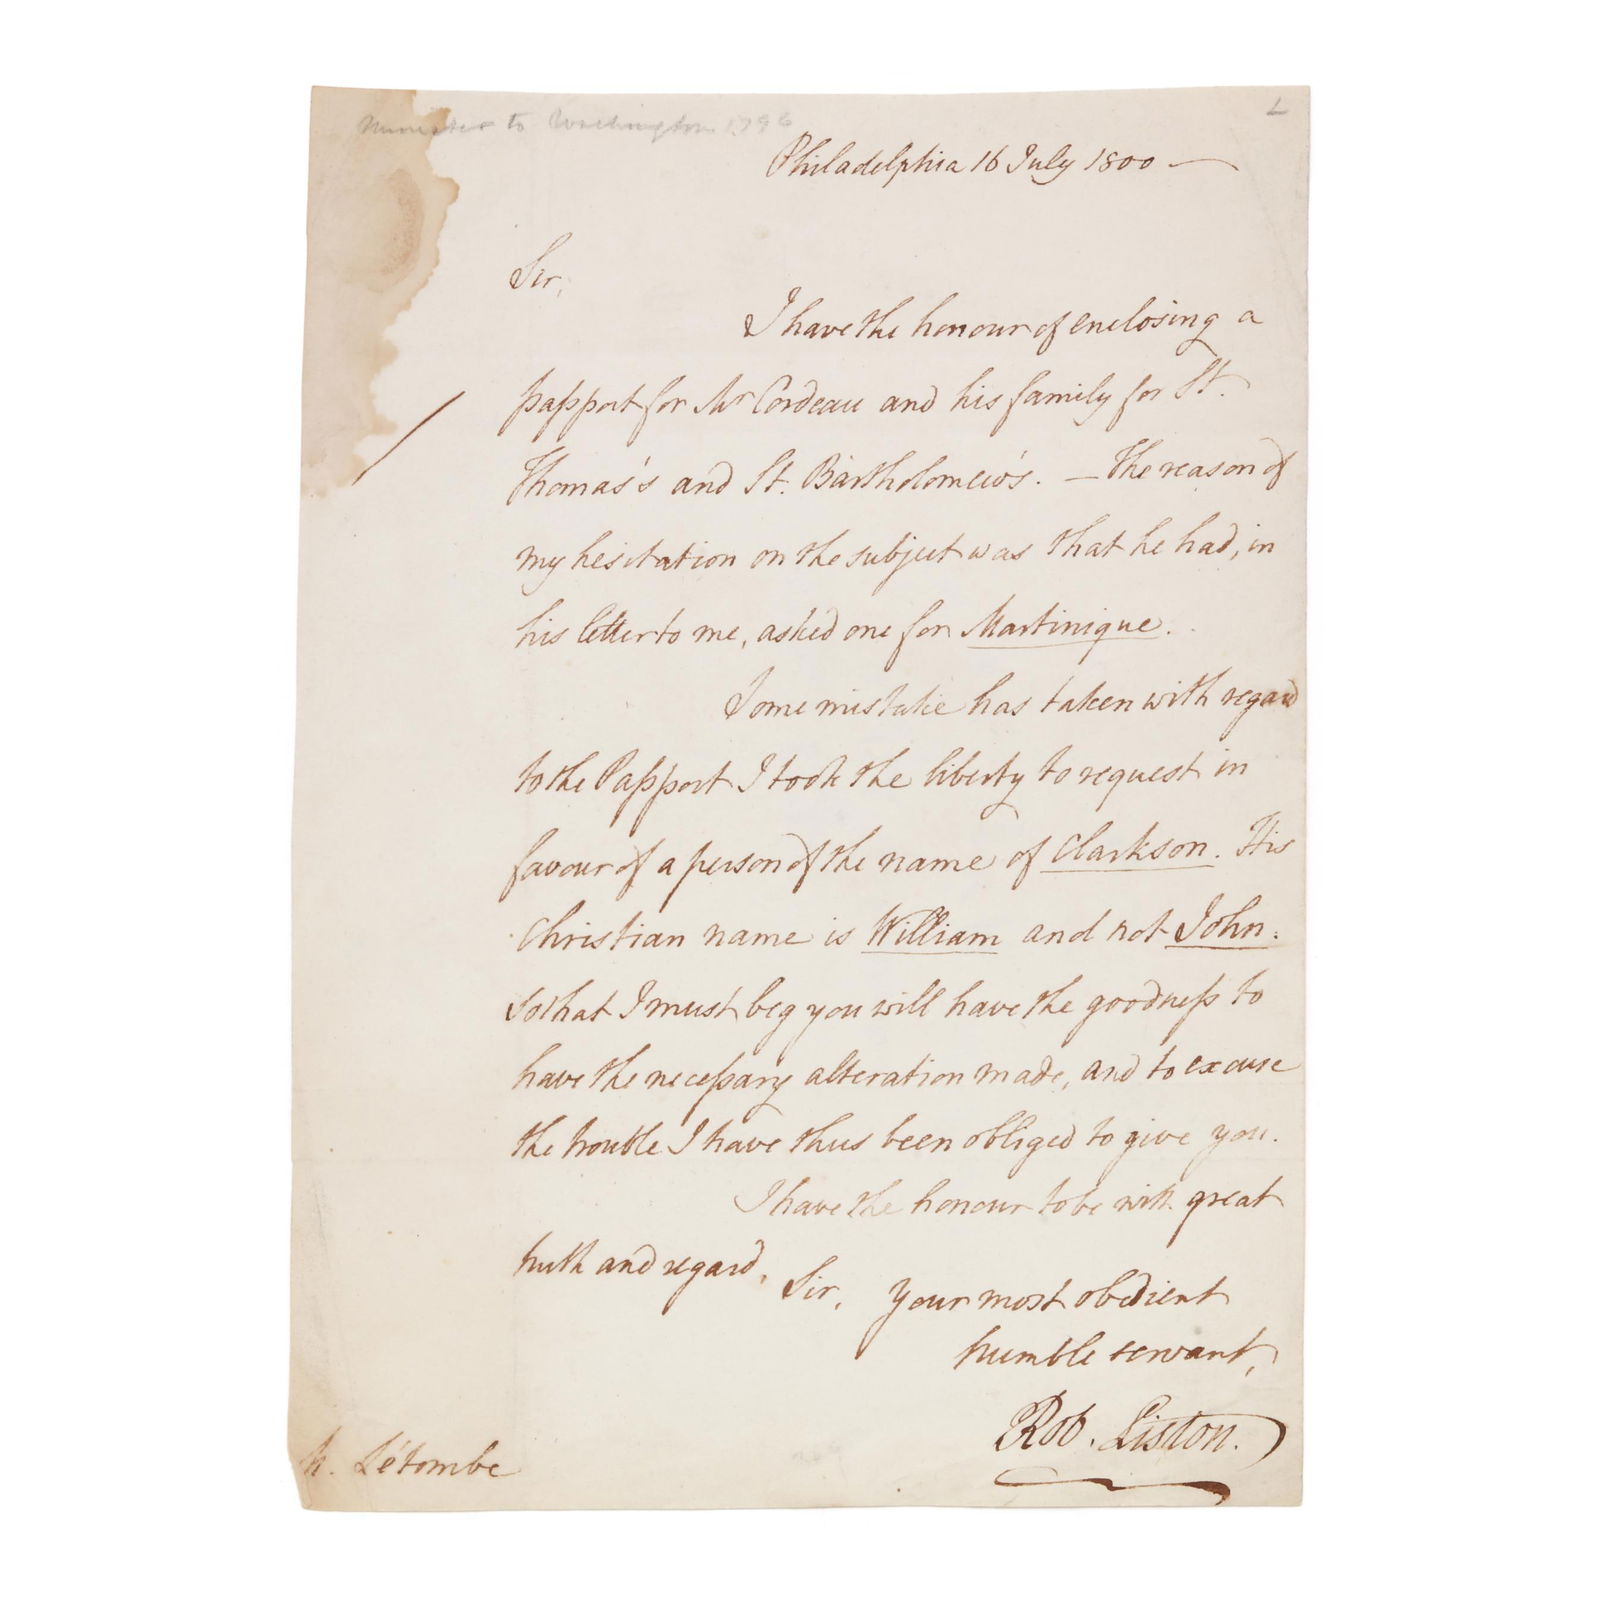 Minister to Washington 1796
L
Philadelphia 16 July 1800 —
Sir,
I have the honour of enclosing a
passport for Mr Cordeau and his family for St.
Thomas's and St. Bartholomew's. — The reason of
my hesitation on the subject was that he had, in
his letter to me, asked one for Martinique.
Some mistake has taken with regard
to the Passport I took the liberty to request in
favour of a person of the name of Clarkson. His
Christian name is William and not John:
So that I must beg you will have the goodness to
have the necessary alteration made, and to excuse
the trouble I have thus been obliged to give you.
I have the honour to be with great
truth and regard,
Sir, Your most obedient
humble servant,
Rob. Liston.
M. Létombe